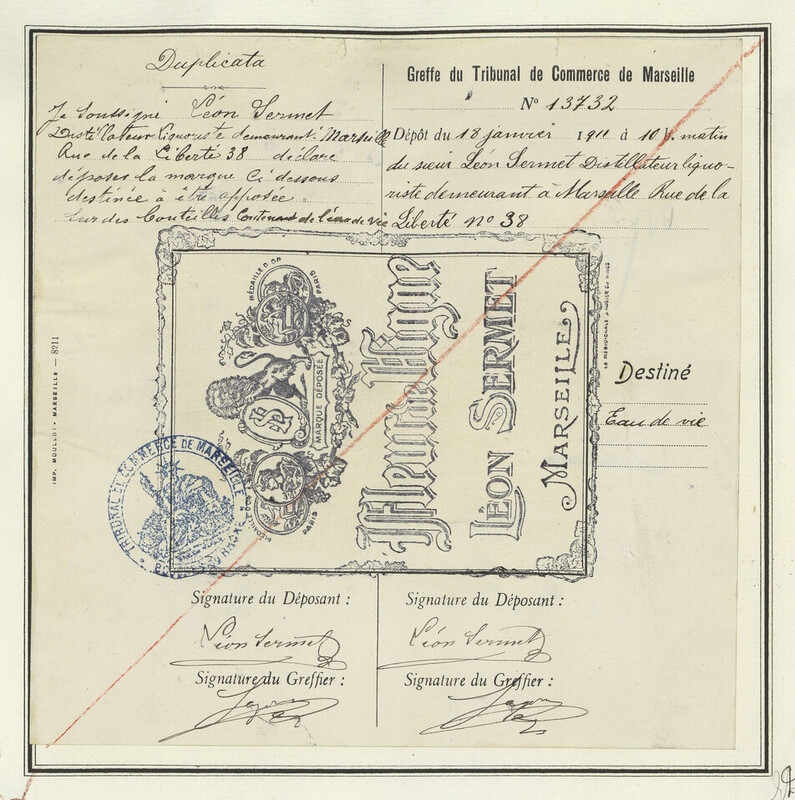 Duplicata
Je Soussigné Léon Sermet
Distillateur liquoriste demeurant Marseille
Rue de la Liberté 38 déclare
déposer la marque Ci dessous
destinée à être apposée
Sur des bouteilles Contenant de l'eau de vie
Greffe du Tribunal de Commerce de Marseille
N° 13732
Dépôt du 18 janvier 1911 à 10 h. matin
du sieur Léon Sermet Distillateur liquo-
riste demeurant à Marseille Rue de la
Liberté n° 38
MÉDAILLE D'OR
PARIS
MARQUE DÉPOSÉE
PARIS
Fleur de Vigne
LÉON SERMET
MARSEILLE
IMP. MOULLOT - MARSEILLE — 8211
TRIBUNAL DE COMMERCE DE MARSEILLE
Destiné
Eau de vie
Signature du Déposant :
Léon Sermet
Signature du Greffier :
Signature du Déposant :
Léon Sermet
Signature du Greffier :